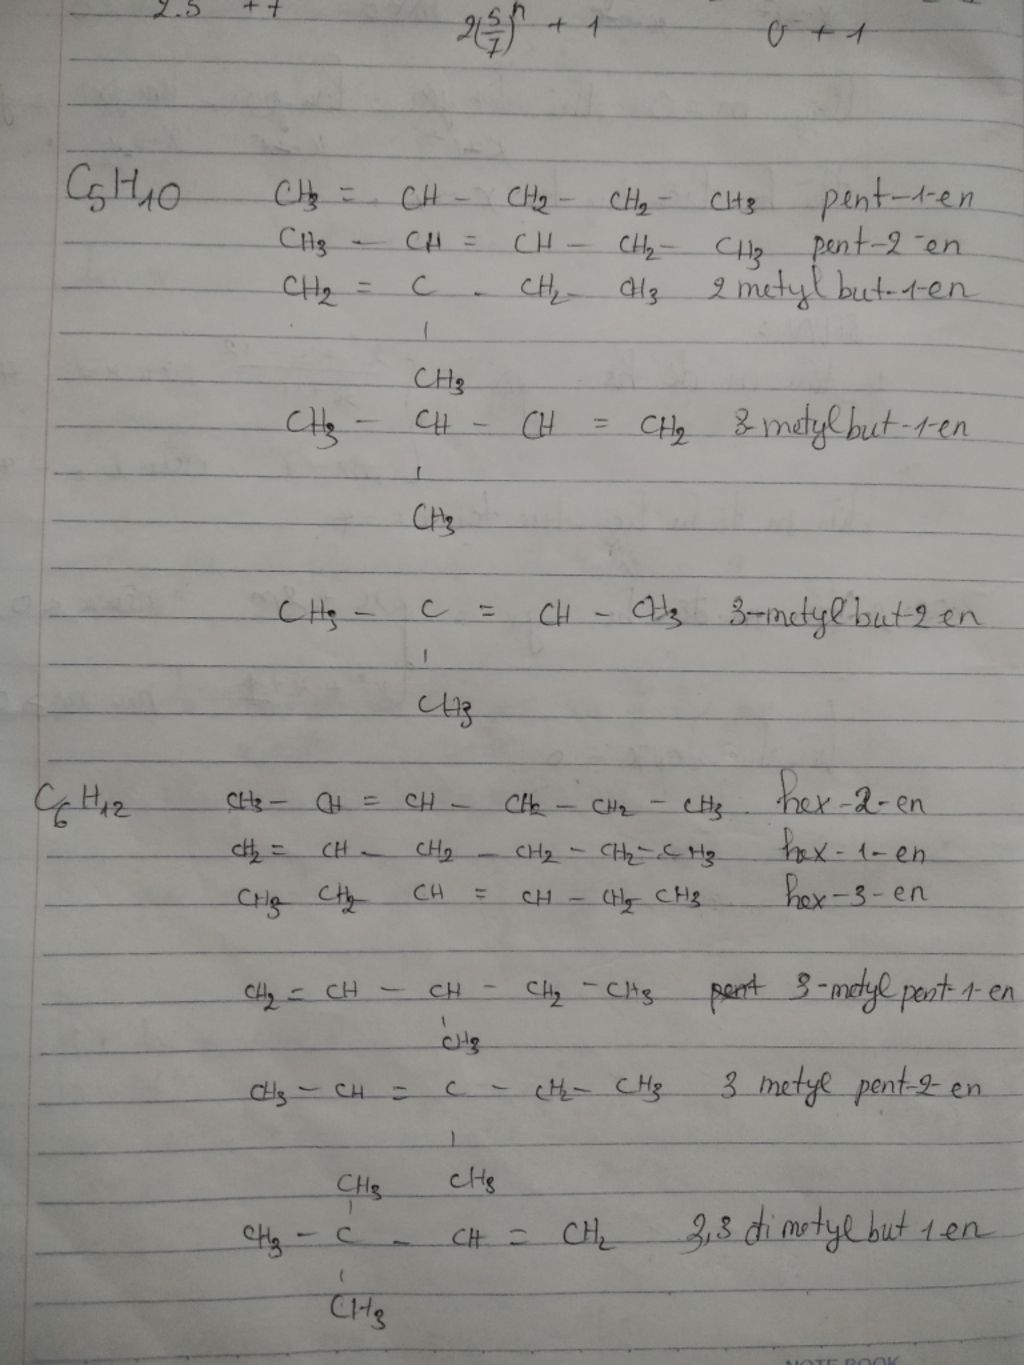 2.5 +7 2(5/7)^n + 1 0 + 1
C5H10 CH3 = CH - CH2 - CH2 - CH3 pent-1-en
CH3 - CH = CH - CH2 - CH3 pent-2-en
CH2 = C - CH2 - CH3 2 metyl but-1-en
CH3
CH3 - CH - CH = CH2 3-metyl but-1-en
CH3
CH3 - C = CH - CH3 3-metyl but-2 en
CH3
C6H12 CH3 - CH = CH - CH2 - CH2 - CH3 hex-2-en
CH2 = CH - CH2 - CH2 - CH2 - CH3 hex-1-en
CH3 CH2 CH = CH - CH2 CH3 hex-3-en
CH2 = CH - CH - CH2 - CH3 pent 3-metyl pent-1-en
CH3
CH3 - CH = C - CH2 - CH3 3 metyl pent-2-en
CH3 CH3
CH3 - C - CH = CH2 3,3 di metyl but 1 en
CH3
NOTE BOOK